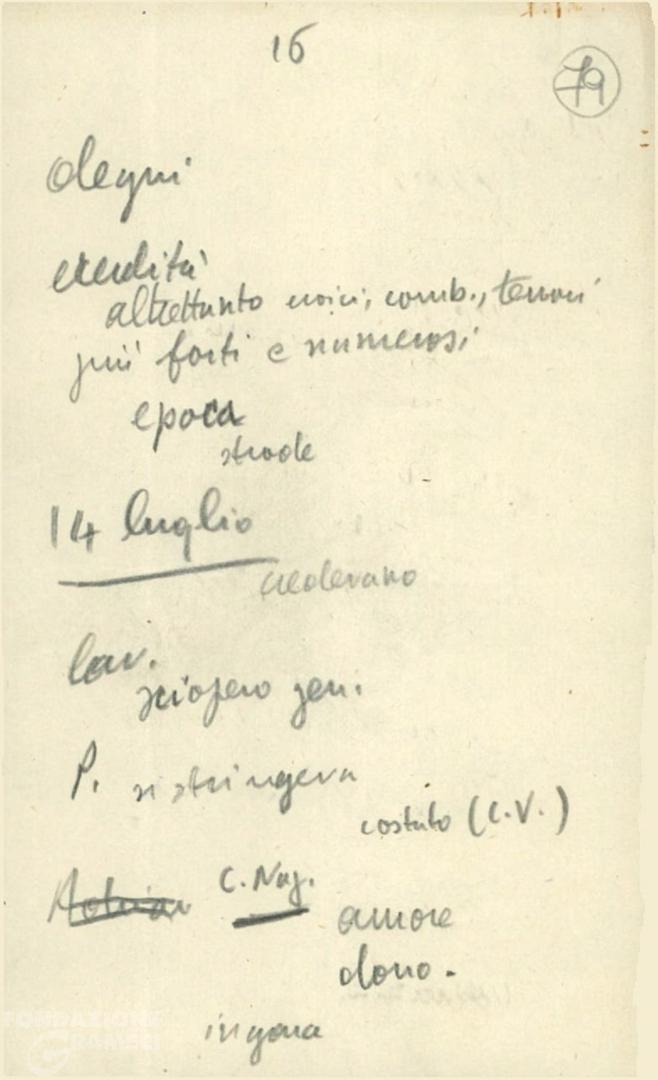 16
79
degni
eredità
altrettanto eroici, comb., tenaci
più forti e numerosi
epoca
strade
14 luglio
credevano
lav.
sciopero gen.
P. si stringeva
costato (C.V.)
C. Naz.
amore
dono.
in gara
FONDAZIONE
GRAMSCI